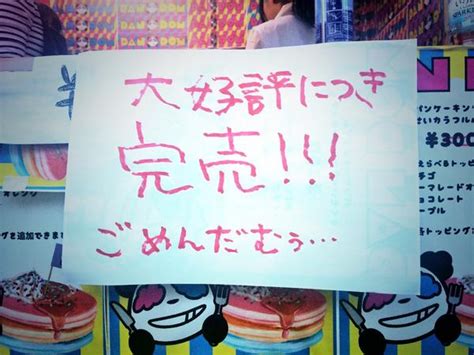 DAN DOM
大好評につき
完売!!!
ごめんだむぅ…
パンケーキン
せいかつフル
¥300
えらべるトッピ
チゴ
ーマレードオ
ョコレート
ープル
トッピング
グを追加できま